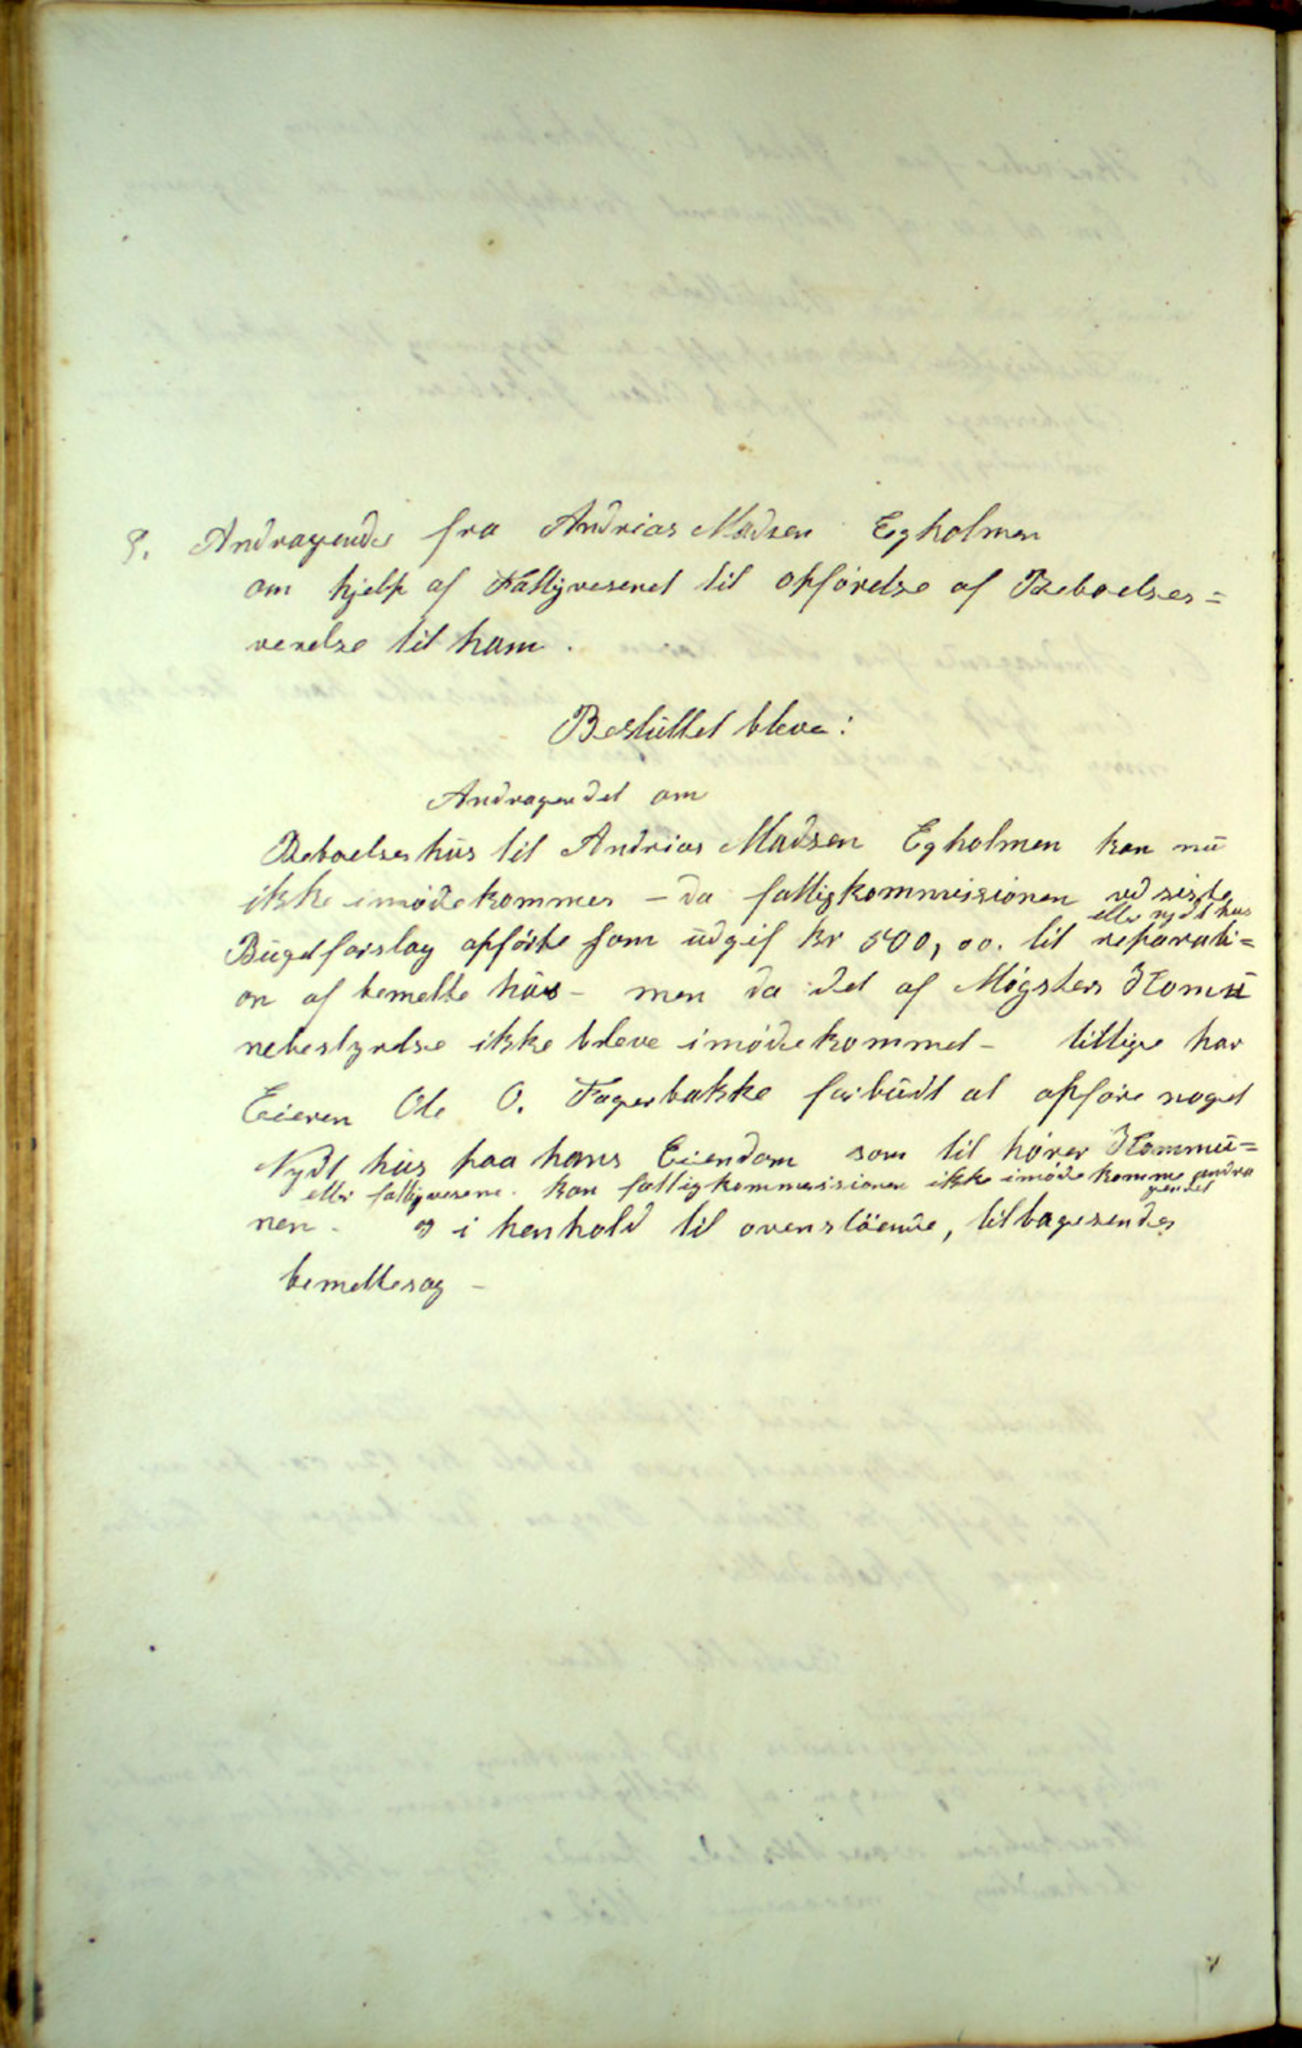 8. Andragende fra Andrias Madsen Egholmen
om hjelp af Fattigvesenet til opførelse af Beboelses=
verelse til ham.
Besluttet bleve:
Andragendet om
Beboelseshus til Andrias Madsen Egholmen kan nu
ikke imødekommes – da fattigkommissionen ved siste
eller nydt hus
Bugetforslag opførte som udgif kr 500,00. til reparati=
on af bemelte hus – men da det af Møgsters Komu
nebestyrelse ikke bleve imødekommet – tillige har
Eieren Ole O. Fagerbakke forbudt at opføre noget
Nydt hus paa hans Eiendom som til hører Kommu=
eller fattigvesene. kan fattigkommissionen ikke imøde komme andra
gendet
nen – og i henhold til ovenstående, tilbagesendes
bemeltesag –